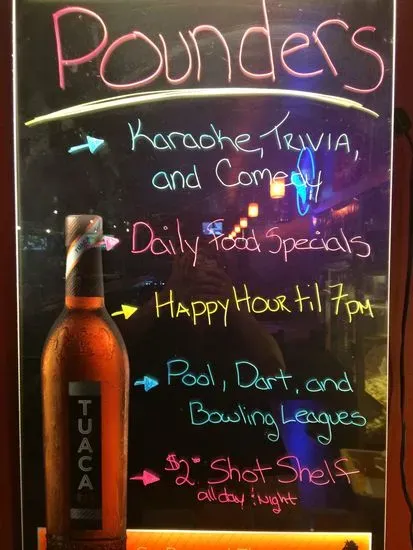 Pounders
Karaoke, Trivia,
and Comedy
Daily Food Specials
Happy Hour til 7pm
TUACA
Pool, Dart, and
Bowling Leagues
$2 Shot Shelf
all day & Night